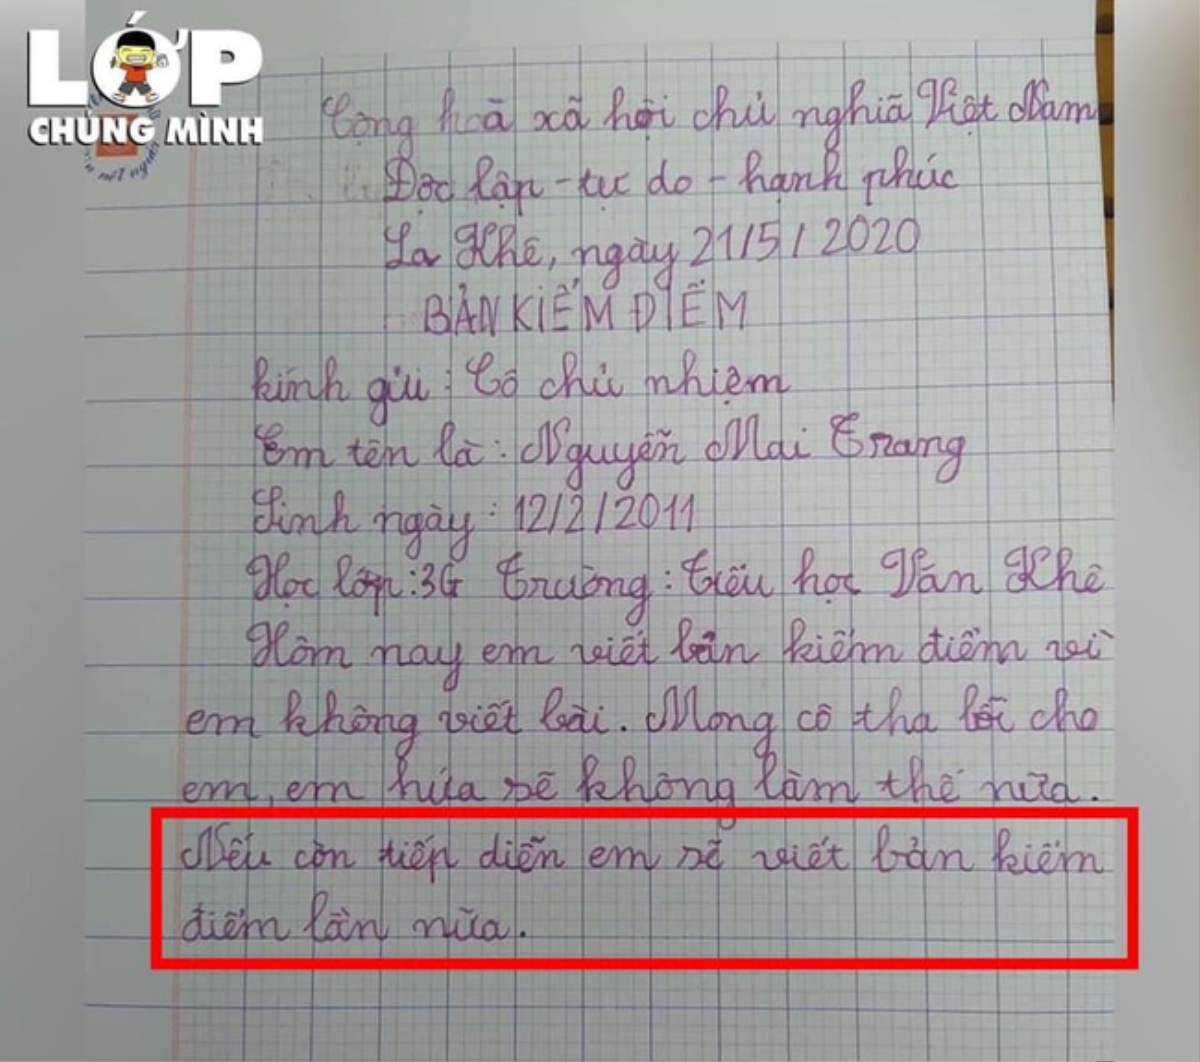 LỚP
CHÚNG MÌNH
Cộng hoà xã hội chủ nghĩa Việt Nam
Độc lập - tự do - hạnh phúc
La Khê, ngày 21/5/2020
BẢN KIỂM ĐIỂM
kính gửi : Cô chủ nhiệm
Em tên là : Nguyễn Mai Trang
Sinh ngày : 12/2/2011
Học lớp : 3G Trường : tiểu học Văn Khê
Hôm nay em viết bản kiểm điểm vì
em không viết bài. Mong cô tha lỗi cho
em, em hứa sẽ không làm thế nữa.
Nếu còn tiếp diễn em sẽ viết bản kiểm
điểm lần nữa.